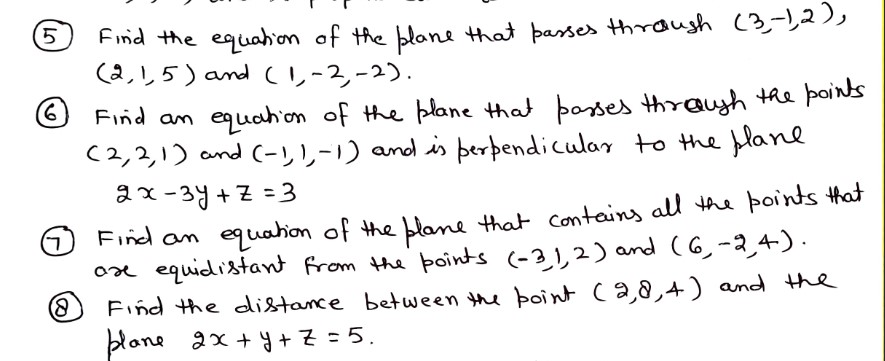 ⑤ Find the equation of the plane that passes through (3,-1,2),
(2,1,5) and (1,-2,-2).
⑥ Find an equation of the plane that passes through the points
(2,2,1) and (-1,1,-1) and is perpendicular to the plane
2x-3y+z=3
⑦ Find an equation of the plane that contains all the points that
are equidistant from the points (-3,1,2) and (6,-2,4).
⑧ Find the distance between the point (2,8,4) and the
plane 2x+y+z=5.